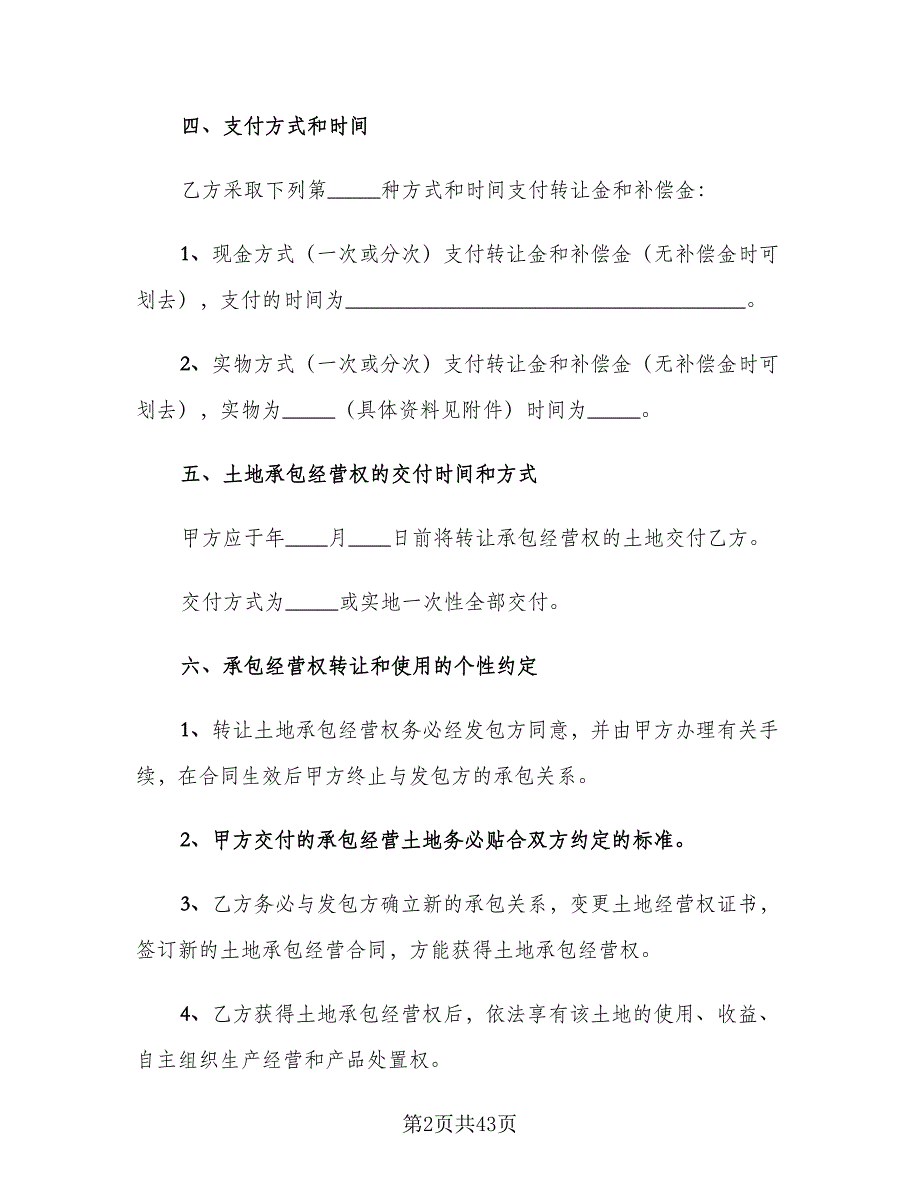 四、支付方式和时间
乙方采取下列第_____种方式和时间支付转让金和补偿金：
1、现金方式（一次或分次）支付转让金和补偿金（无补偿金时可
划去），支付的时间为______________________________________。
2、实物方式（一次或分次）支付转让金和补偿金（无补偿金时可
划去），实物为_____（具体资料见附件）时间为_____。
五、土地承包经营权的交付时间和方式
甲方应于年____月____日前将转让承包经营权的土地交付乙方。
交付方式为_____或实地一次性全部交付。
六、承包经营权转让和使用的个性约定
1、转让土地承包经营权务必经发包方同意，并由甲方办理有关手
续，在合同生效后甲方终止与发包方的承包关系。
2、甲方交付的承包经营土地务必贴合双方约定的标准。
3、乙方务必与发包方确立新的承包关系，变更土地经营权证书，
签订新的土地承包经营合同，方能获得土地承包经营权。
4、乙方获得土地承包经营权后，依法享有该土地的使用、收益、
自主组织生产经营和产品处置权。
第2页共43页